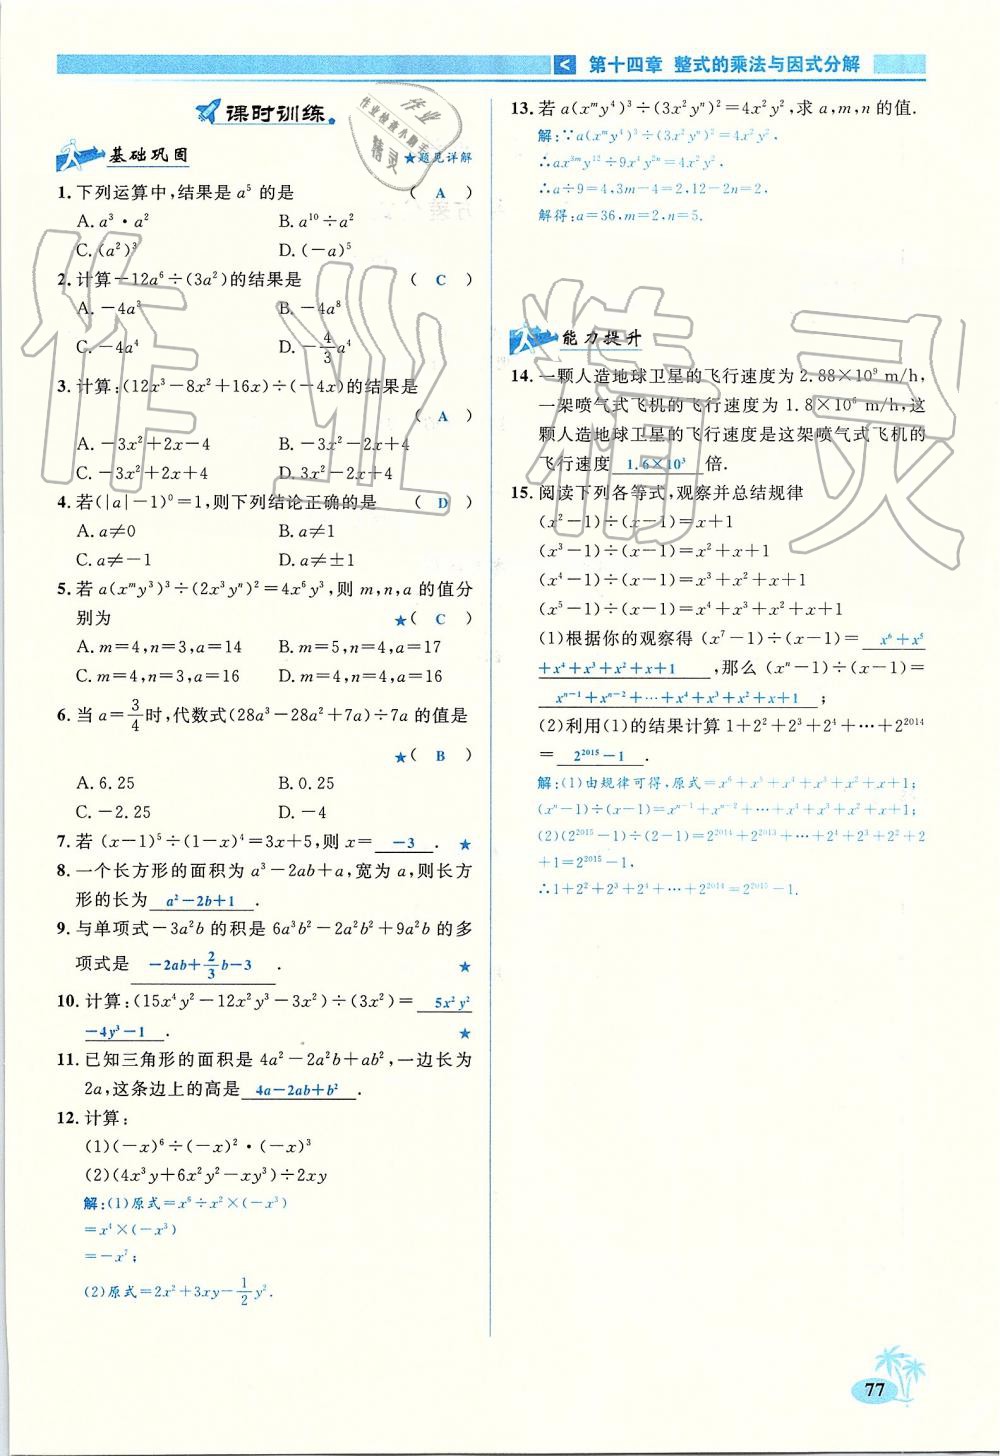 第十四章 整式的乘法与因式分解
课时训练
基础巩固 ★题见详解
1. 下列运算中,结果是 a⁵ 的是 ( A )
A. a³·a² B. a¹⁰÷a²
C. (a²)³ D. (-a)⁵
2. 计算-12a⁶÷(3a²)的结果是 ( C )
A. -4a³ B. -4a⁸
C. -4a⁴ D. -4/3 a⁴
3. 计算:(12x³-8x²+16x)÷(-4x)的结果是
( A )
A. -3x²+2x-4 B. -3x²-2x+4
C. -3x²-2x+4 D. 3x²-2x+4
4. 若(|a|-1)⁰=1,则下列结论正确的是 ( D )
A. a≠0 B. a≠1
C. a≠-1 D. a≠±1
5. 若 a(xᵐy³)³÷(2x³yⁿ)²=4x⁶y³,则 m,n,a 的值分
别为 ★( C )
A. m=4,n=3,a=14 B. m=5,n=4,a=17
C. m=4,n=3,a=16 D. m=4,n=4,a=16
6. 当 a=3/4时,代数式(28a³-28a²+7a)÷7a 的值是
★( B )
A. 6.25 B. 0.25
C. -2.25 D. -4
7. 若 (x-1)⁵÷(1-x)⁴=3x+5,则 x= -3 . ★
8. 一个长方形的面积为 a³-2ab+a,宽为 a,则长方
形的长为 a²-2b+1 .
9. 与单项式-3a²b 的积是 6a³b²-2a²b²+9a²b 的多
项式是 -2ab+2/3 b-3 . ★
10. 计算:(15x⁴y²-12x²y³-3x²)÷(3x²)= 5x²y²
-4y³-1 . ★
11. 已知三角形的面积是 4a²-2a²b+ab²,一边长为
2a,这条边上的高是 4a-2ab+b² .
12. 计算:
(1)(-x)⁶÷(-x)²·(-x)³
(2)(4x³y+6x²y²-xy³)÷2xy
解:(1)原式=x⁶÷x²×(-x³)
=x⁴×(-x³)
=-x⁷;
(2)原式=2x²+3xy-1/2 y².
13. 若 a(xᵐy⁴)³÷(3x²yⁿ)²=4x²y²,求 a,m,n 的值.
解:∵a(xᵐy⁴)³÷(3x²yⁿ)²=4x²y²,
∴ax³ᵐy¹²÷9x⁴y²ⁿ=4x²y²,
∴a÷9=4,3m-4=2,12-2n=2,
解得:a=36,m=2,n=5.
能力提升
14. 一颗人造地球卫星的飞行速度为 2.88×10⁹ m/h,
一架喷气式飞机的飞行速度为 1.8×10⁶ m/h,这
颗人造地球卫星的飞行速度是这架喷气式飞机的
飞行速度 1.6×10³ 倍.
15. 阅读下列各等式,观察并总结规律
(x²-1)÷(x-1)=x+1
(x³-1)÷(x-1)=x²+x+1
(x⁴-1)÷(x-1)=x³+x²+x+1
(x⁵-1)÷(x-1)=x⁴+x³+x²+x+1
(1)根据你的观察得 (x⁷-1)÷(x-1)= x⁶+x⁵
+x⁴+x³+x²+x+1 ,那么 (xⁿ-1)÷(x-1)=
xⁿ⁻¹+xⁿ⁻²+…+x⁴+x³+x²+x+1 ;
(2)利用(1)的结果计算 1+2²+2³+2⁴+…+2²⁰¹⁴
= 2²⁰¹⁵-1 .
解:(1)由规律可得,原式=x⁶+x⁵+x⁴+x³+x²+x+1;
(xⁿ-1)÷(x-1)=xⁿ⁻¹+xⁿ⁻²+…+x⁴+x³+x²+x+1;
(2)(2²⁰¹⁵-1)÷(2-1)=2²⁰¹⁴+2²⁰¹³+…+2⁴+2³+2²+2
+1=2²⁰¹⁵-1,
∴1+2²+2³+2⁴+…+2²⁰¹⁴=2²⁰¹⁵-1.
77
作业精灵